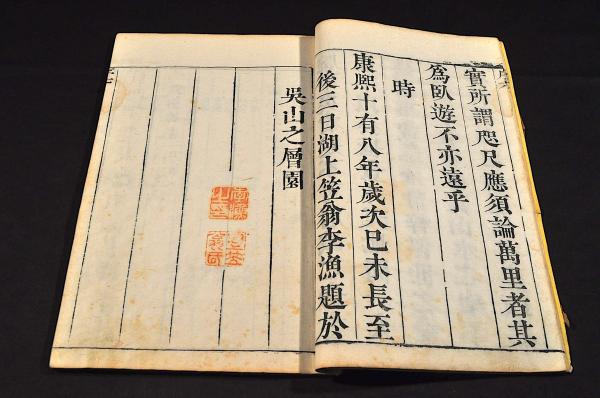 實所謂咫尺應須論萬里者其
為臥遊不亦遠乎
時
康熙十有八年歲次己未長至
後三日湖上笠翁李漁題於
吳山之層園
李漁之印